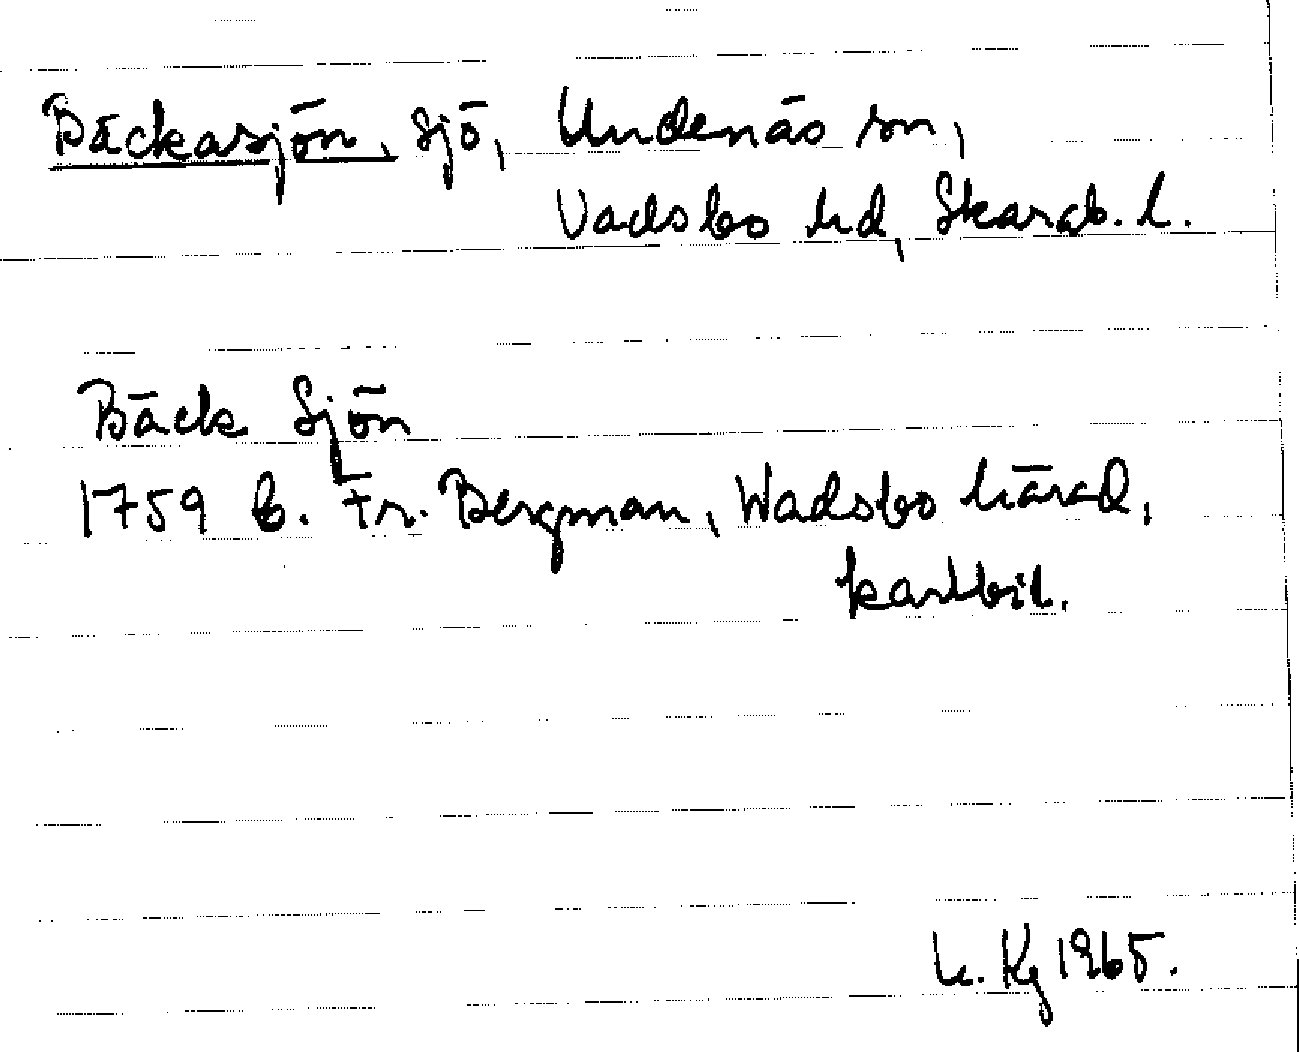 Bäckasjön, sjö, Undenäs sn,
Vadsbo hd, Skarab. l.
Bäck Sjön
1759 b. Fr. Bergman, Wadsbo härad,
kartbil.
h. Kg 1965.